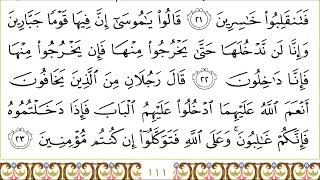 فَتَنقَلِبُوا۟ خَـٰسِرِينَ ٢١ قَالُوا۟ يَـٰمُوسَىٰٓ إِنَّ فِيهَا قَوْمًا جَبَّارِينَ
وَإِنَّا لَن نَّدْخُلَهَا حَتَّىٰ يَخْرُجُوا۟ مِنْهَا فَإِن يَخْرُجُوا۟ مِنْهَا
فَإِنَّا دَٰخِلُونَ ٢٢ قَالَ رَجُلَانِ مِنَ ٱلَّذِينَ يَخَافُونَ
أَنْعَمَ ٱللَّهُ عَلَيْهِمَا ٱدْخُلُوا۟ عَلَيْهِمُ ٱلْبَابَ فَإِذَا دَخَلْتُمُوهُ
فَإِنَّكُمْ غَـٰلِبُونَ ۚ وَعَلَى ٱللَّهِ فَتَوَكَّلُوٓا۟ إِن كُنتُم مُّؤْمِنِينَ ٢٣
١١١